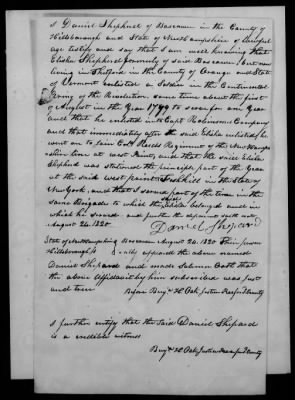 I Daniel Shephard of Boscawen in the County of
Hillsborough and State of New hampshire of lawful
age testify and say that I am well knowing that
Elisha Shephard formerly of said Boscawen, but now
living in Thetford in the County of Orange and State
of Vermont enlisted a Soldier in the Continental
Army of the Revolution some time about the first
of August in the Year 1779 to serve for one Year
and that he enlisted into Capt Robinsons Company
and that immediately after the said Elisha enlisted he
went on to Join Colo Reeds Regiment of the New Hamp
shire line at west Point, and that the said Elisha
Shephard was stationed the principle part of the Year
at the said west point & in the State of
New York, and that I served part of the time in the
same Brigade to which the said Elisha belonged and in
which he served and further the deponent saith not
August 24. 1820
Daniel Shepard
State of New Hampshire Boscawen August 24. 1820 Then person
Hillsborough Ss ally appeared the above named
Daniel Shepard and made Solemn Oath that
the above affidavit by him subscribed was just
and true
Before Justice Peace sd County
I further certify that the said Daniel Shepard
is a credible witness
Justice Peace sd County